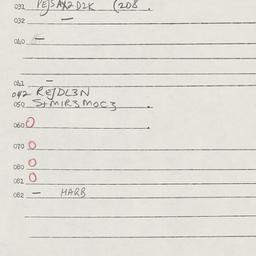 031 PEJSAX2D2K (208.
032 —
040 —
041 —
042 REJDL3N
050 S+MIR3MOC3
060 O
070 O
080 O
081 O
082 — HARB